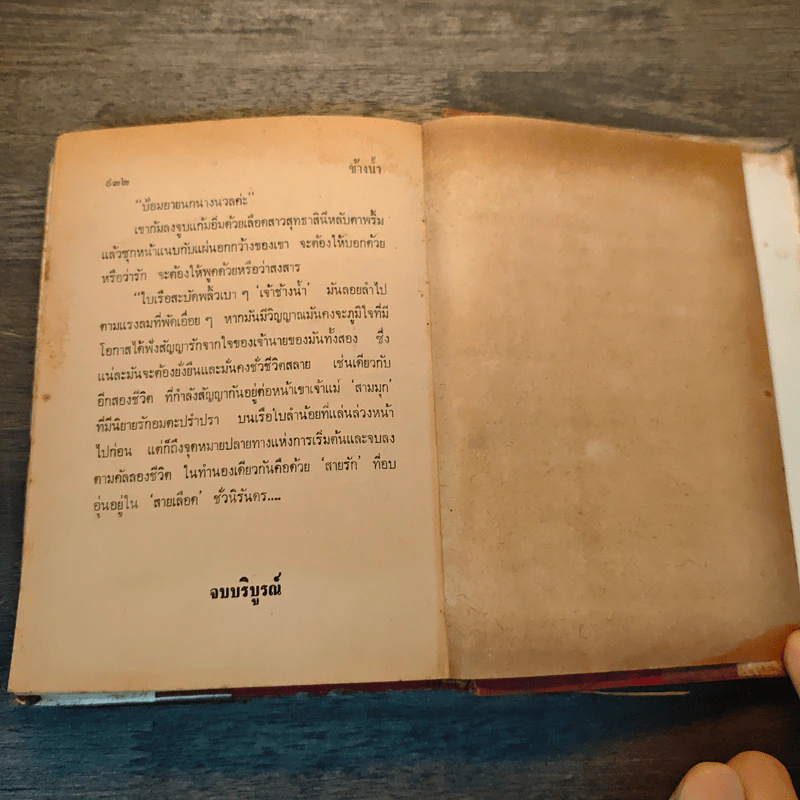 ๕๓๒ ช้างน้ำ
“ป้อมอายนกนางนวลค่ะ”
เขาก้มลงจูบแก้มอิ่มด้วยเลือดสาวสุทธาสินีหลับตาพริ้ม
แล้วซุกหน้าแนบกับแผ่นอกกว้างของเขา จะต้องให้บอกด้วย
หรือว่ารัก จะต้องให้พูดด้วยหรือว่าสงสาร
“ใบเรือสะบัดพลิ้วเบา ๆ ‘เจ้าช้างน้ำ’ มันลอยลำไป
ตามแรงลมที่พัดเอื่อย ๆ หากมันมีวิญญาณมันคงจะภูมิใจที่มี
โอกาสได้ฟังสัญญารักจากใจของเจ้านายของมันทั้งสอง ซึ่ง
แน่ละมันจะต้องยั่งยืนและมั่นคงชั่วชีวิตสลาย เช่นเดียวกับ
อีกสองชีวิต ที่กำลังสัญญากันอยู่ต่อหน้าเขาเจ้าแม่ ‘สามมุก’
ที่มีนิยายรักอมตะปรำปรา บนเรือใบลำน้อยที่แล่นล่วงหน้า
ไปก่อน แต่ก็ถึงจุดหมายปลายทางแห่งการเริ่มต้นและจบลง
ตามคัลลองชีวิต ในทำนองเดียวกันคือด้วย ‘สายรัก’ ที่อบ
อุ่นอยู่ใน ‘สายเลือด’ ชั่วนิรันดร....
จบบริบูรณ์